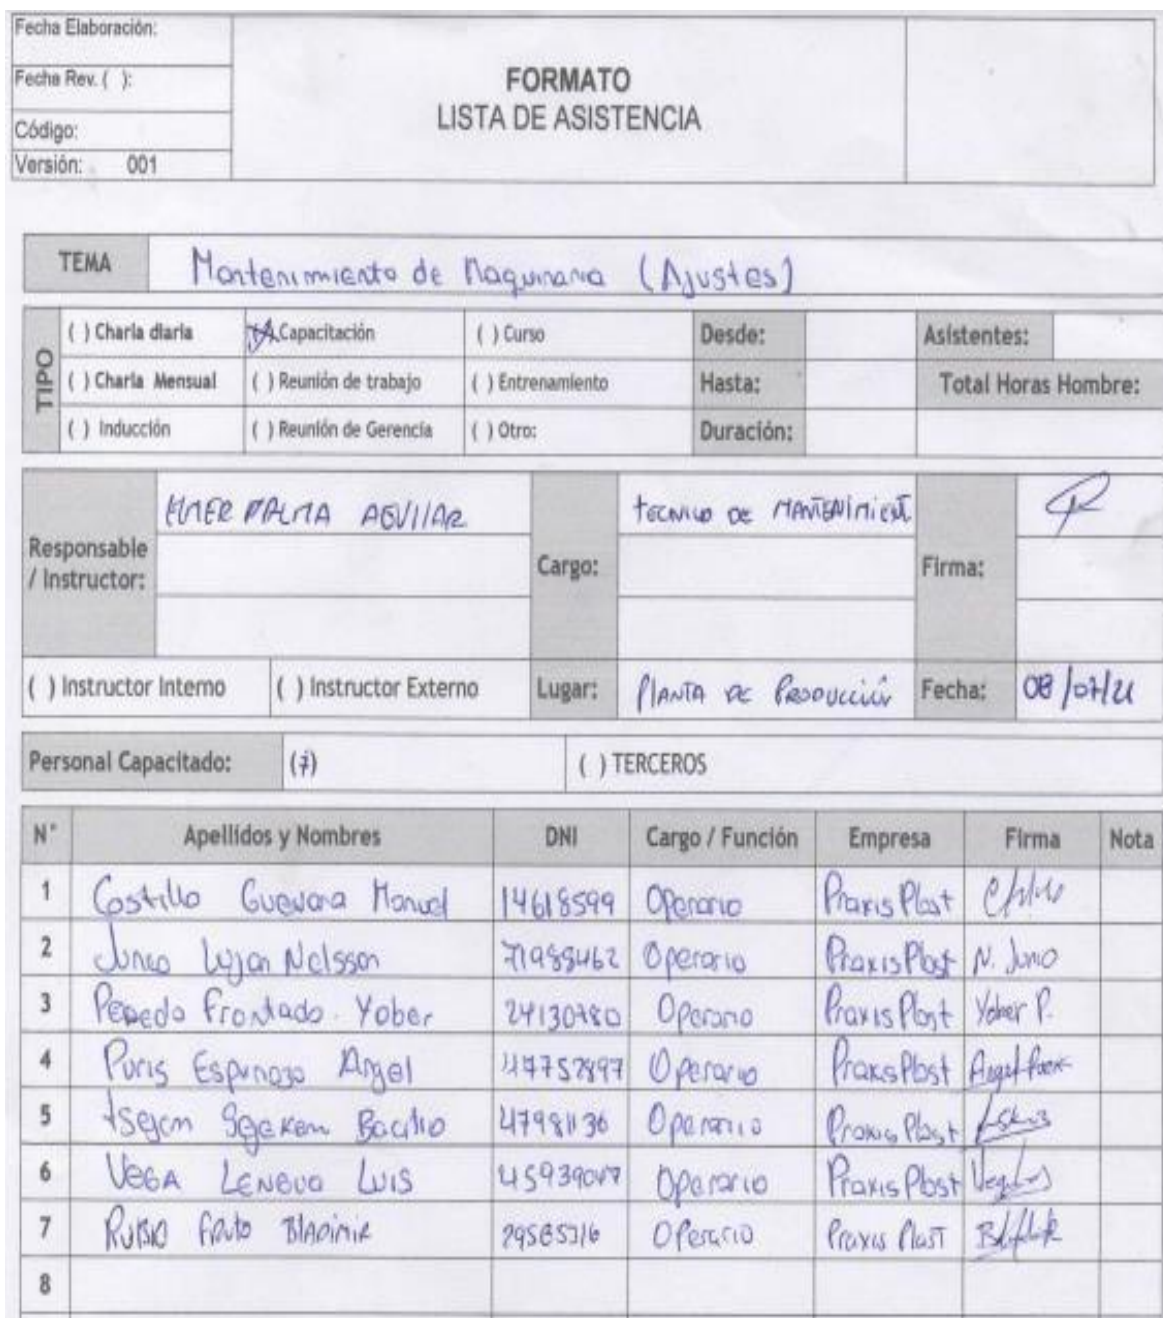 Fecha Elaboración:
Fecha Rev. ( ):
Código:
Versión: 001
FORMATO
LISTA DE ASISTENCIA
TEMA Mantenimiento de Maquinaria (Ajustes)
TIPO
( ) Charla diaria (X) Capacitación ( ) Curso Desde: Asistentes:
( ) Charla Mensual ( ) Reunión de trabajo ( ) Entrenamiento Hasta: Total Horas Hombre:
( ) Inducción ( ) Reunión de Gerencia ( ) Otro: Duración:
Responsable / Instructor: PALMA AGUILAR Cargo: TECNICO DE MANTENIMIENT Firma:
( ) Instructor Interno ( ) Instructor Externo Lugar: PLANTA DE PRODUCCIÓN Fecha: 08/07/21
Personal Capacitado: (7) ( ) TERCEROS
N° Apellidos y Nombres DNI Cargo / Función Empresa Firma Nota
1 Castillo Guevara Manuel 14618599 Operario Praxis Plast
2 Junco Lujan Nelsson 71988462 Operario Praxis Plast N. Junco
3 Frontado Yober 24130780 Operario Praxis Plast Yober P.
4 Puris Espinoza Angel 47752897 Operario Praxis Plast Angel
5 Bacilio Operario Praxis Plast
6 VEGA LENGUA LUIS 45939047 Operario Praxis Plast
7 RUBIO BLADIMIR Operario Praxis Plast
8